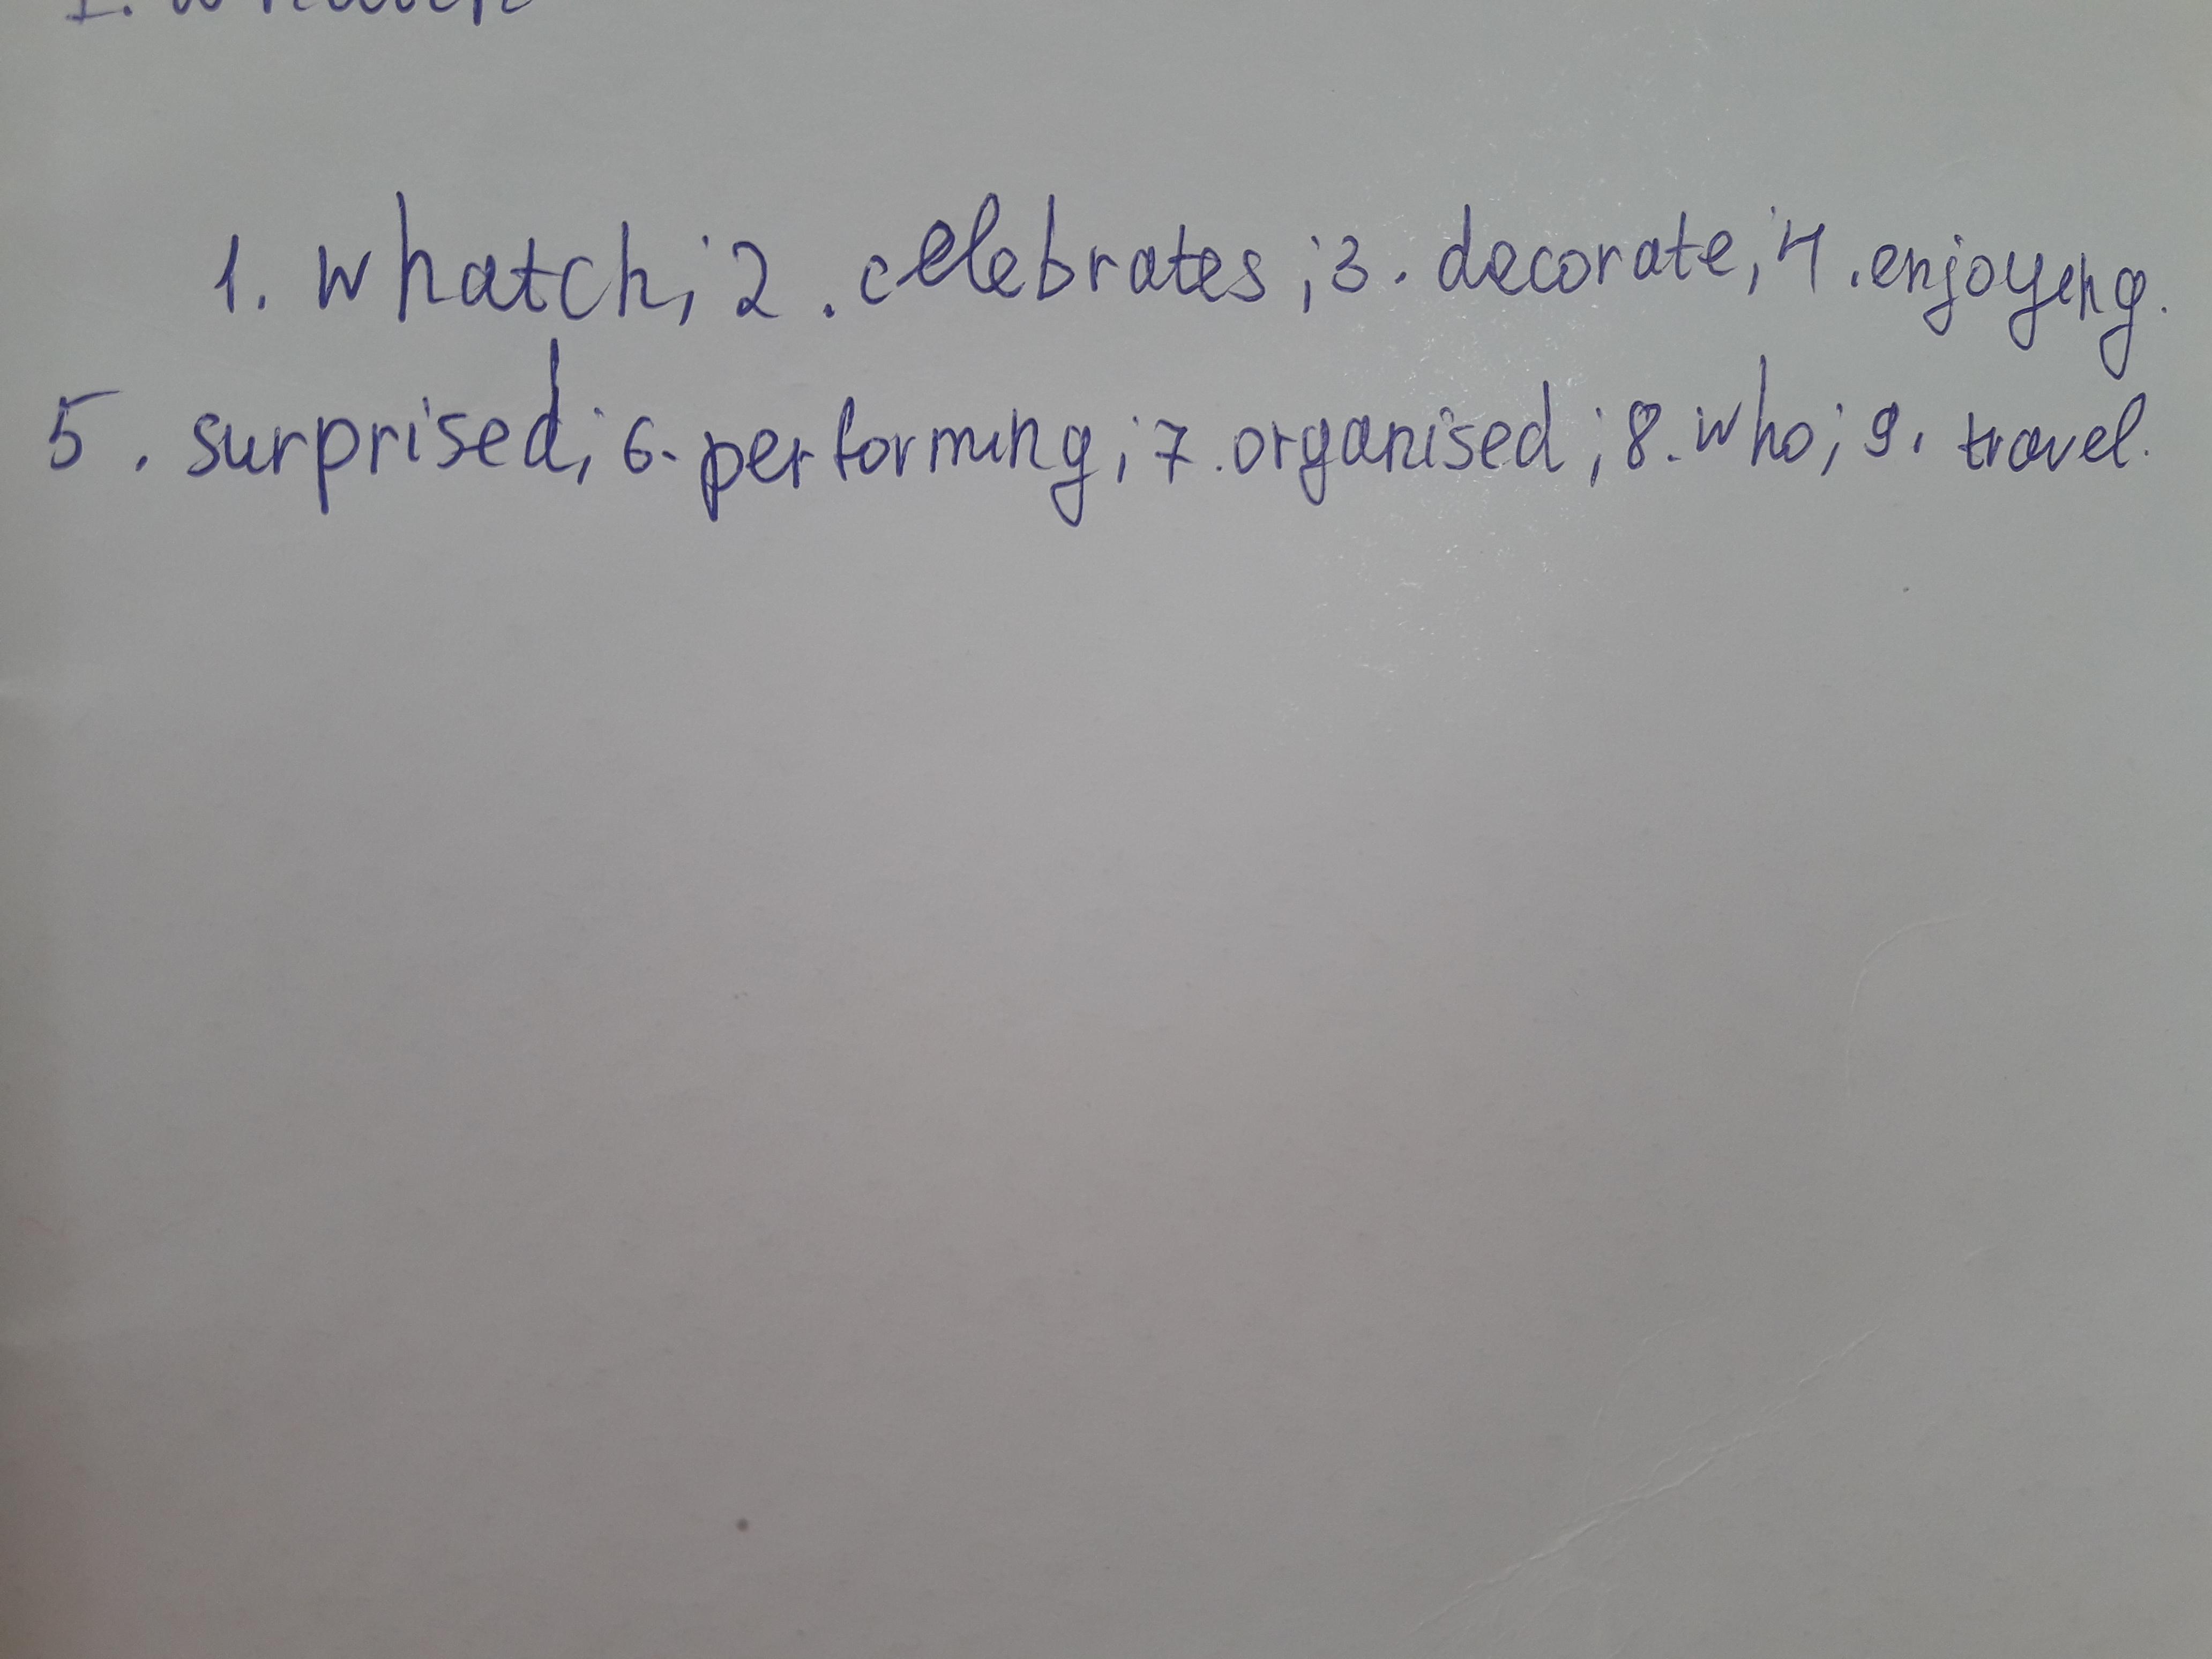 1. whatch; 2. celebrates; 3. decorate; 4. enjoyeng.
5. surprised; 6. performing; 7. organised; 8. who; 9. travel.